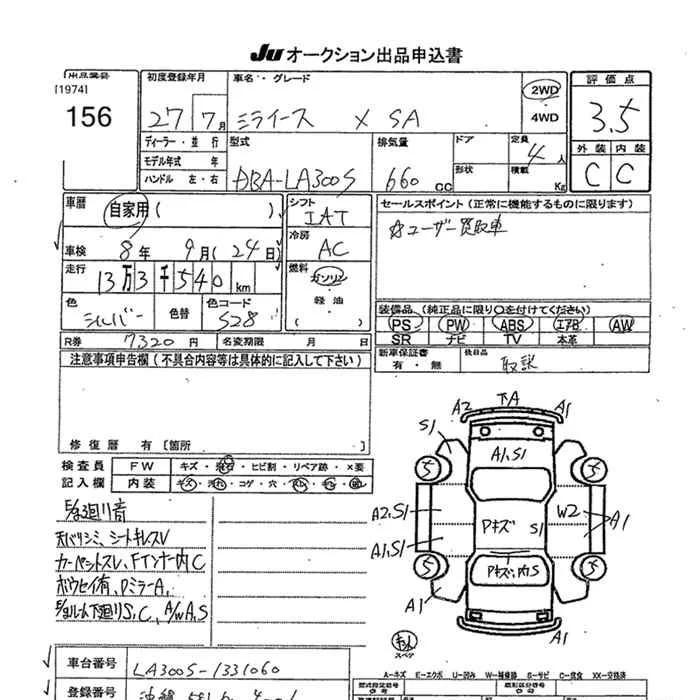 Ju オークション出品申込書
出品番号
[1974]
156
初度登録年月
27 7月
車名・グレード
ミライース X SA
2WD
4WD
評価点
3.5
外装 内装
C C
ディーラー・並行
モデル年式 年
ハンドル 左・右
型式
DBA-LA300S
排気量
660 CC
ドア
形状
定員
4人
積載
Kg
車歴
自家用 ( )
車検 8年 9月 (24日)
走行
13万3千540km
色
シルバー
色替
色コード
S28
シフト
IAT
冷房
AC
燃料
ガソリン
軽油
セールスポイント (正常に機能するものに限ります)
☆ユーザー買取車
装備品 (純正品に限り○を付けてください)
PS PW ABS エアB AW
SR ナビ TV 本革
新車保証書
有・無
後日品
取説
R券 7320円
名変期限 月 日
注意事項申告欄 (不具合内容等は具体的に記入して下さい)
修復歴 有 [箇所 ]
検査員
記入欄
FW キズ・飛石・ヒビ割・リペア跡・×要
内装 キズ・汚れ・コゲ・穴
廻り音
天バリシミ、シートキレスレ
カーペットスレ、Fインナー内C
ルーム下廻りS,C、A/WA,S
車台番号
LA300S-1331060
登録番号
沖縄 581
A2 下A A1
S1
A1,S1
5 5
A2,S1
Pキズ S1
W2
A1
A1,S1
5 5
Pキズ、内S
A1
A1
スペア
A-キズ E-エクボ U-凹み W-補修跡 S-サビ C-腐食 XX-交換済
型式指定番号
類別区分番号